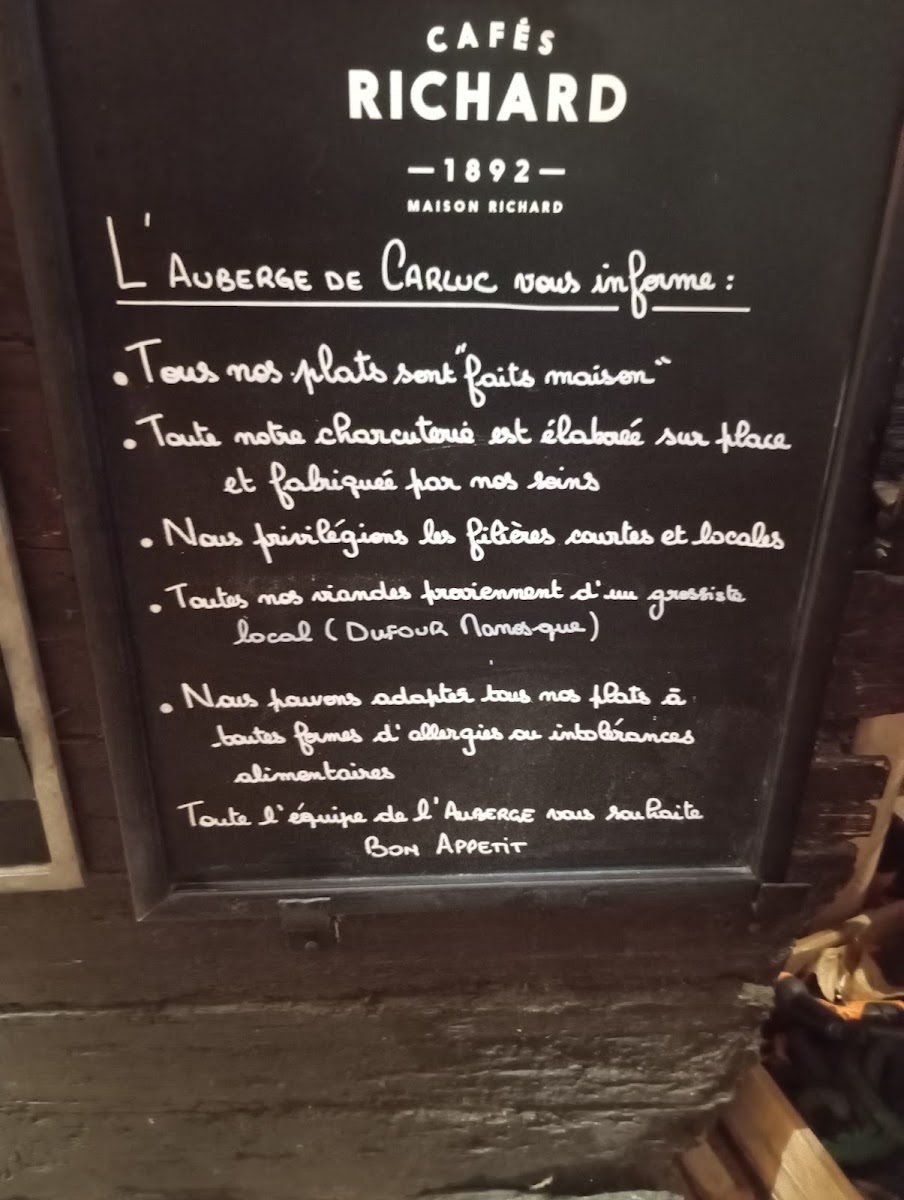 CAFÉS
RICHARD
—1892—
MAISON RICHARD
L'AUBERGE DE CARLUC vous informe :
• Tous nos plats sont "faits maison"
• Toute notre charcuterie est élaboreé sur place
et fabriqueé par nos soins
• Nous privilégions les filières courtes et locales
• Toutes nos viandes proviennent d'un grossiste
local (DUFOUR Manosque)
• Nous pouvons adapter tous nos plats à
toutes formes d'allergies ou intolérances
alimentaires
Toute l'équipe de l'AUBERGE vous souhaite
BON APPETIT